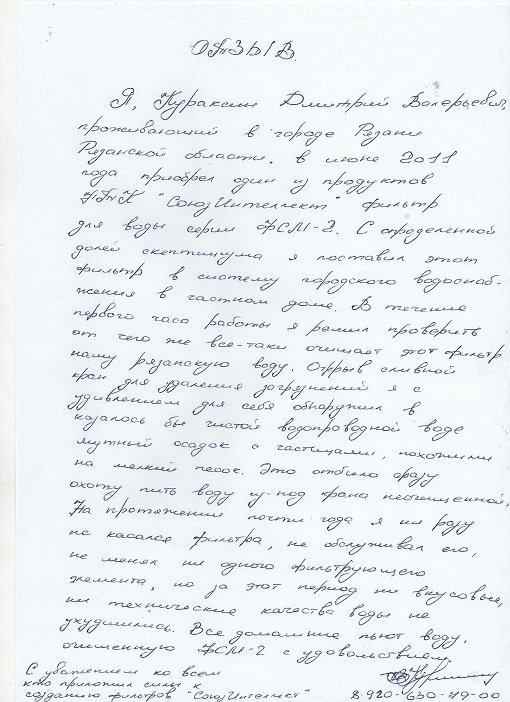 ОТЗЫВ.
Я, Кураксин Дмитрий Валерьевич,
проживающий в городе Рязани
Рязанской области, в июне 2011
года приобрел один из продуктов
НПК "СоюзИнтеллект" фильтр
для воды серии ФСМ-2. С определенной
долей скептицизма я поставил этот
фильтр в систему городского водоснаб-
жения в частном доме. В течение
первого часа работы я решил проверить
от чего же все-таки очищает этот фильтр
нашу рязанскую воду. Открыв сливной
кран для удаления загрязнений я с
удивлением для себя обнаружил в
казалось бы чистой водопроводной воде
мутный осадок с частицами, похожими
на мелкий песок. Это отбило сразу
охоту пить воду из-под крана неочищенной.
На протяжении почти года я ни разу
не касался фильтра, не обслуживал его,
не менял ни одного фильтрующего
элемента, но за этот период ни вкусовые,
ни технические качества воды не
ухудшились. Все домашние пьют воду,
очищенную ФСМ-2 с удовольствием.
С уважением ко всем
кто приложил силы к
созданию фильтров "СоюзИнтеллект"
8-920-630-49-00